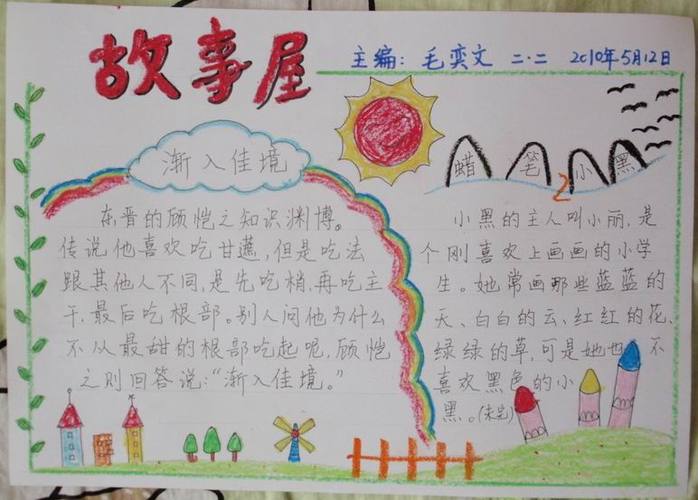 故事屋
主编：毛奕文 二·二 2010年5月12日
渐入佳境
东晋的顾恺之知识渊博。
传说他喜欢吃甘蔗，但是吃法
跟其他人不同，是先吃梢，再吃主
干，最后吃根部。别人问他为什么
不从最甜的根部吃起呢，顾恺
之则回答说：“渐入佳境。”
蜡笔小黑
2
小黑的主人叫小丽，是
个刚喜欢上画画的小学
生。她常画那些蓝蓝的
天、白白的云、红红的花、
绿绿的草，可是她也不
喜欢黑色的小
黑。(未完)